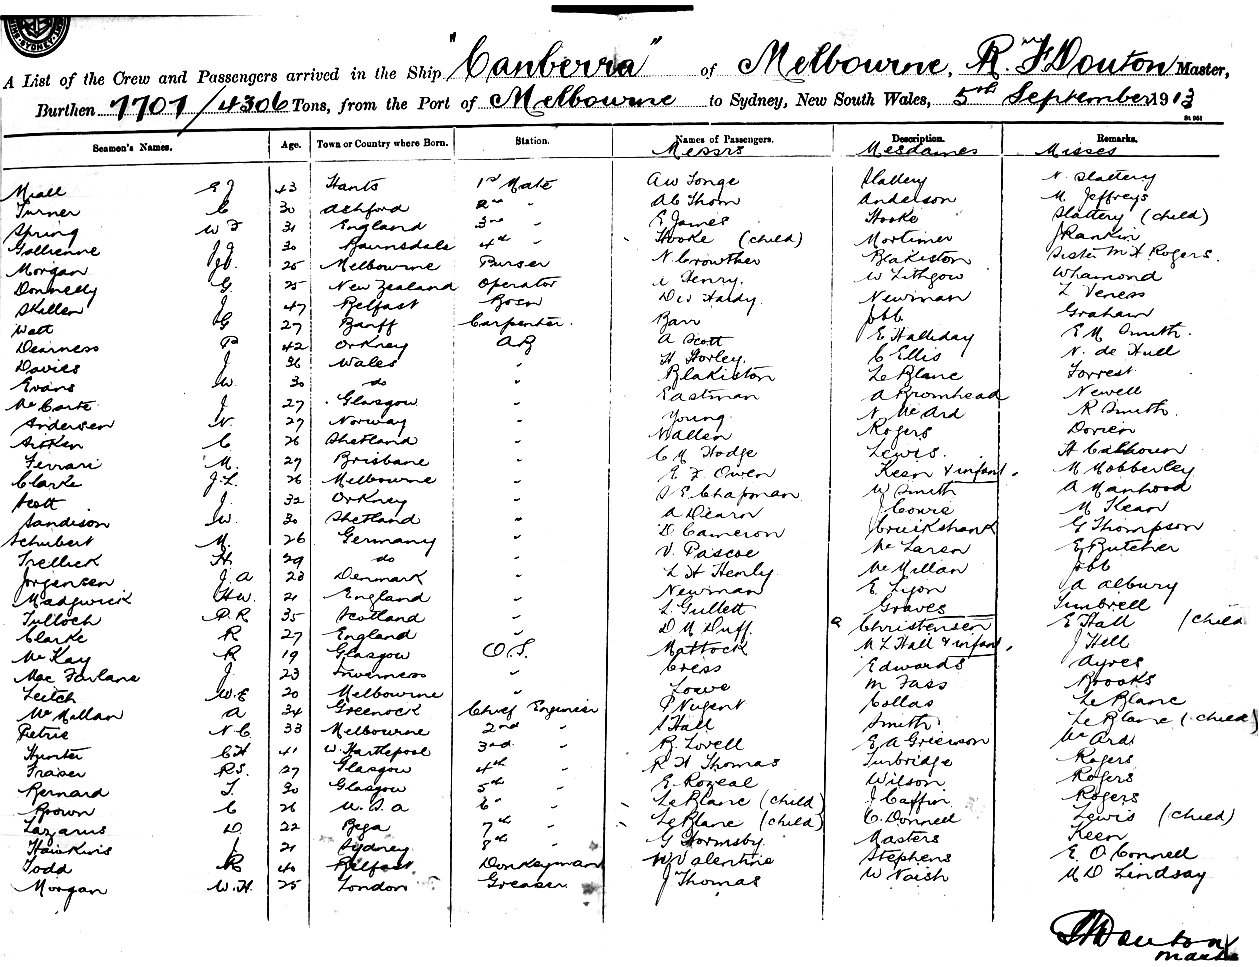 SYDNEY
A List of the Crew and Passengers arrived in the Ship "Canberra" of Melbourne, R. Douton Master,
Burthen 7707/4306 Tons, from the Port of Melbourne to Sydney, New South Wales, 5th September 1913
St 951
Seamen's Names. Age. Town or Country where Born. Station. Names of Passengers. Description. Remarks.
Messrs Mesdames Misses
Miall E J 43 Hants 1st Mate A W Tonge Slattery N. Slattery
Turner C 30 Ashford 2nd " A C Thom Anderson M. Jeffreys
Spring W F 31 England 3rd " E James Hooke Slattery (child)
Gollienne J J 30 Bairnsdale 4th " Hooke (child) Mortimer J Rankin
Morgan 25 Melbourne Purser N Crowther Blakiston Sister M H Rogers.
Donnelly G. 25 New Zealand Operator Henry. W Lithgow Whamond
Skillen J. 47 Belfast Bosn D W Haldy. Newman L Veness
Watt G 27 Banff Carpenter. Barr Jobb Graham
Dearness P 42 Orkney AB A Scott E Halliday E M Smith.
Davies J 36 Wales " H Horley. C Ellis N. de Hull
Evans W. 30 do " Blakiston Le Blanc Forrest
Mc Carte J. 27 Glasgow " Eastman A Bromhead Newell
Andersen 27 Norway " Young N. Mc Ard R Smith.
Aitken C 26 Shetland " Wallen Rogers Dorien
Ferrari M. 27 Brisbane " C M Hodge Lewis. H Calhoun
Clarke J. L. 26 Melbourne " E F Owen Keen & infant. M Mobberley
Scott J. 32 Orkney " S E Chapman W Smith A Manhood
Sandison W. 30 Shetland " A Dearn J Cowie M Kean
Schubert M. 26 Germany " D Cameron Cruikshank G Thompson
Trellick H. 29 do " V. Pascoe Mc Laren E Butcher
Jorgensen J. A 23 Denmark " L H Henly Mc Millan Jobb
Madgwick H W. 21 England " Newman E Lyon A Albury
Tulloch P. R 35 Scotland " L Gullett Graves Timbrell
Clarke R 27 England " D M Duff. Christensen E Hall (child
Mc Kay R 19 Glasgow O.S. Mattock M L Hall & infant. J Hell
Mac Farlane J. 23 Inverness " Criss Edwards Ayres
Leitch W. E 20 Melbourne " Lowe M Tass Brooks
Mc Mallan A 34 Greenock Chief Engineer P Nugent Collas Le Blanc
Petrie N C 33 Melbourne 2nd " S Hall Smith Le Blanc (child)
Hunter C H 41 W. Hartlepool 3rd " R. Lovell E A Grierson Mc Ard
Fraser R S. 27 Glasgow 4th " R H Thomas Turbridge Rogers
Bernard T. 30 Glasgow 5th " E Rozeal Wilson. Rogers
Brown C 26 U. S. A 6th " Le Blanc (child) J Caffin. Rogers
Lazarus D. 22 Bega 7th " Le Blanc (child) C. Donnell Lewis (child)
Hawkins J. 21 Sydney 8th " G Hornsby Masters Keen
Todd R 40 Belfast Donkeyman W Valentine Stephens E O Connell
Morgan W. H. 25 London Greaser J Thomas W Naish M D Lindsay
R Douton
Master